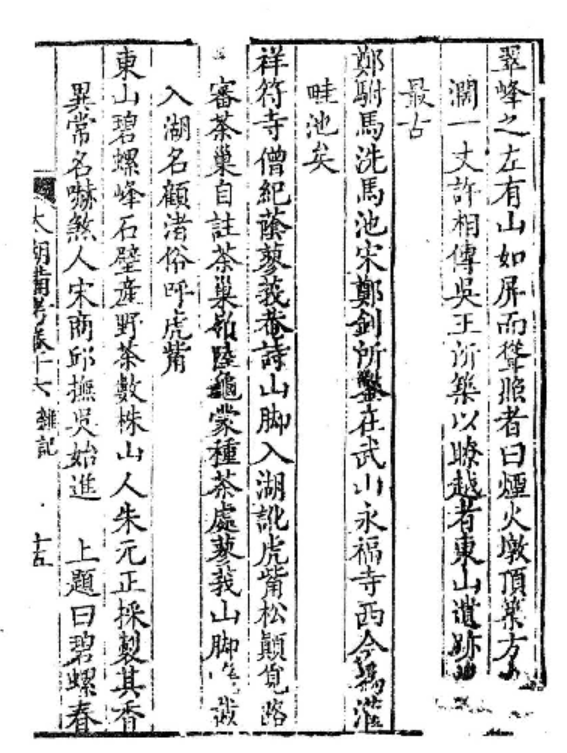 翠峰之左有山如屏而聳照者曰煙火墩頂築方
濶一丈許相傳吳王所築以瞭越者東山遺跡
最古
鄭駙馬洗馬池宋鄭釗所鑿在武山永福寺西今爲灌
畦池矣
祥符寺僧紀蔭蓼莪菴詩山脚入湖訛虎嘴松顛覓路
審茶巢自註茶巢陸龜蒙種茶處蓼莪山脚
入湖名顧渚俗呼虎嘴
東山碧螺峰石壁產野茶數株山人朱元正採製其香
異常名嚇煞人宋商邱撫吳始進 上題曰碧螺春
太湖備考卷十六 雜記 十五